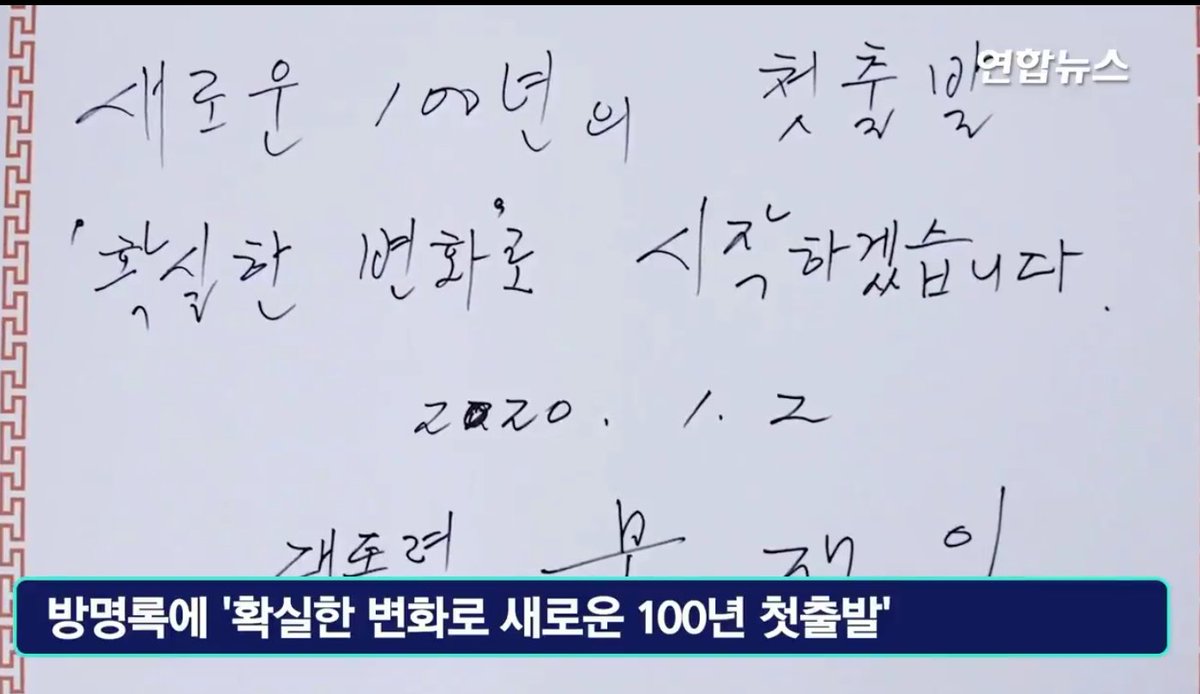 새로운 100년의 첫출발
연합뉴스
'확실한 변화'로 시작하겠습니다.
2020. 1. 2
대통령 문 재 인
방명록에 '확실한 변화로 새로운 100년 첫출발'